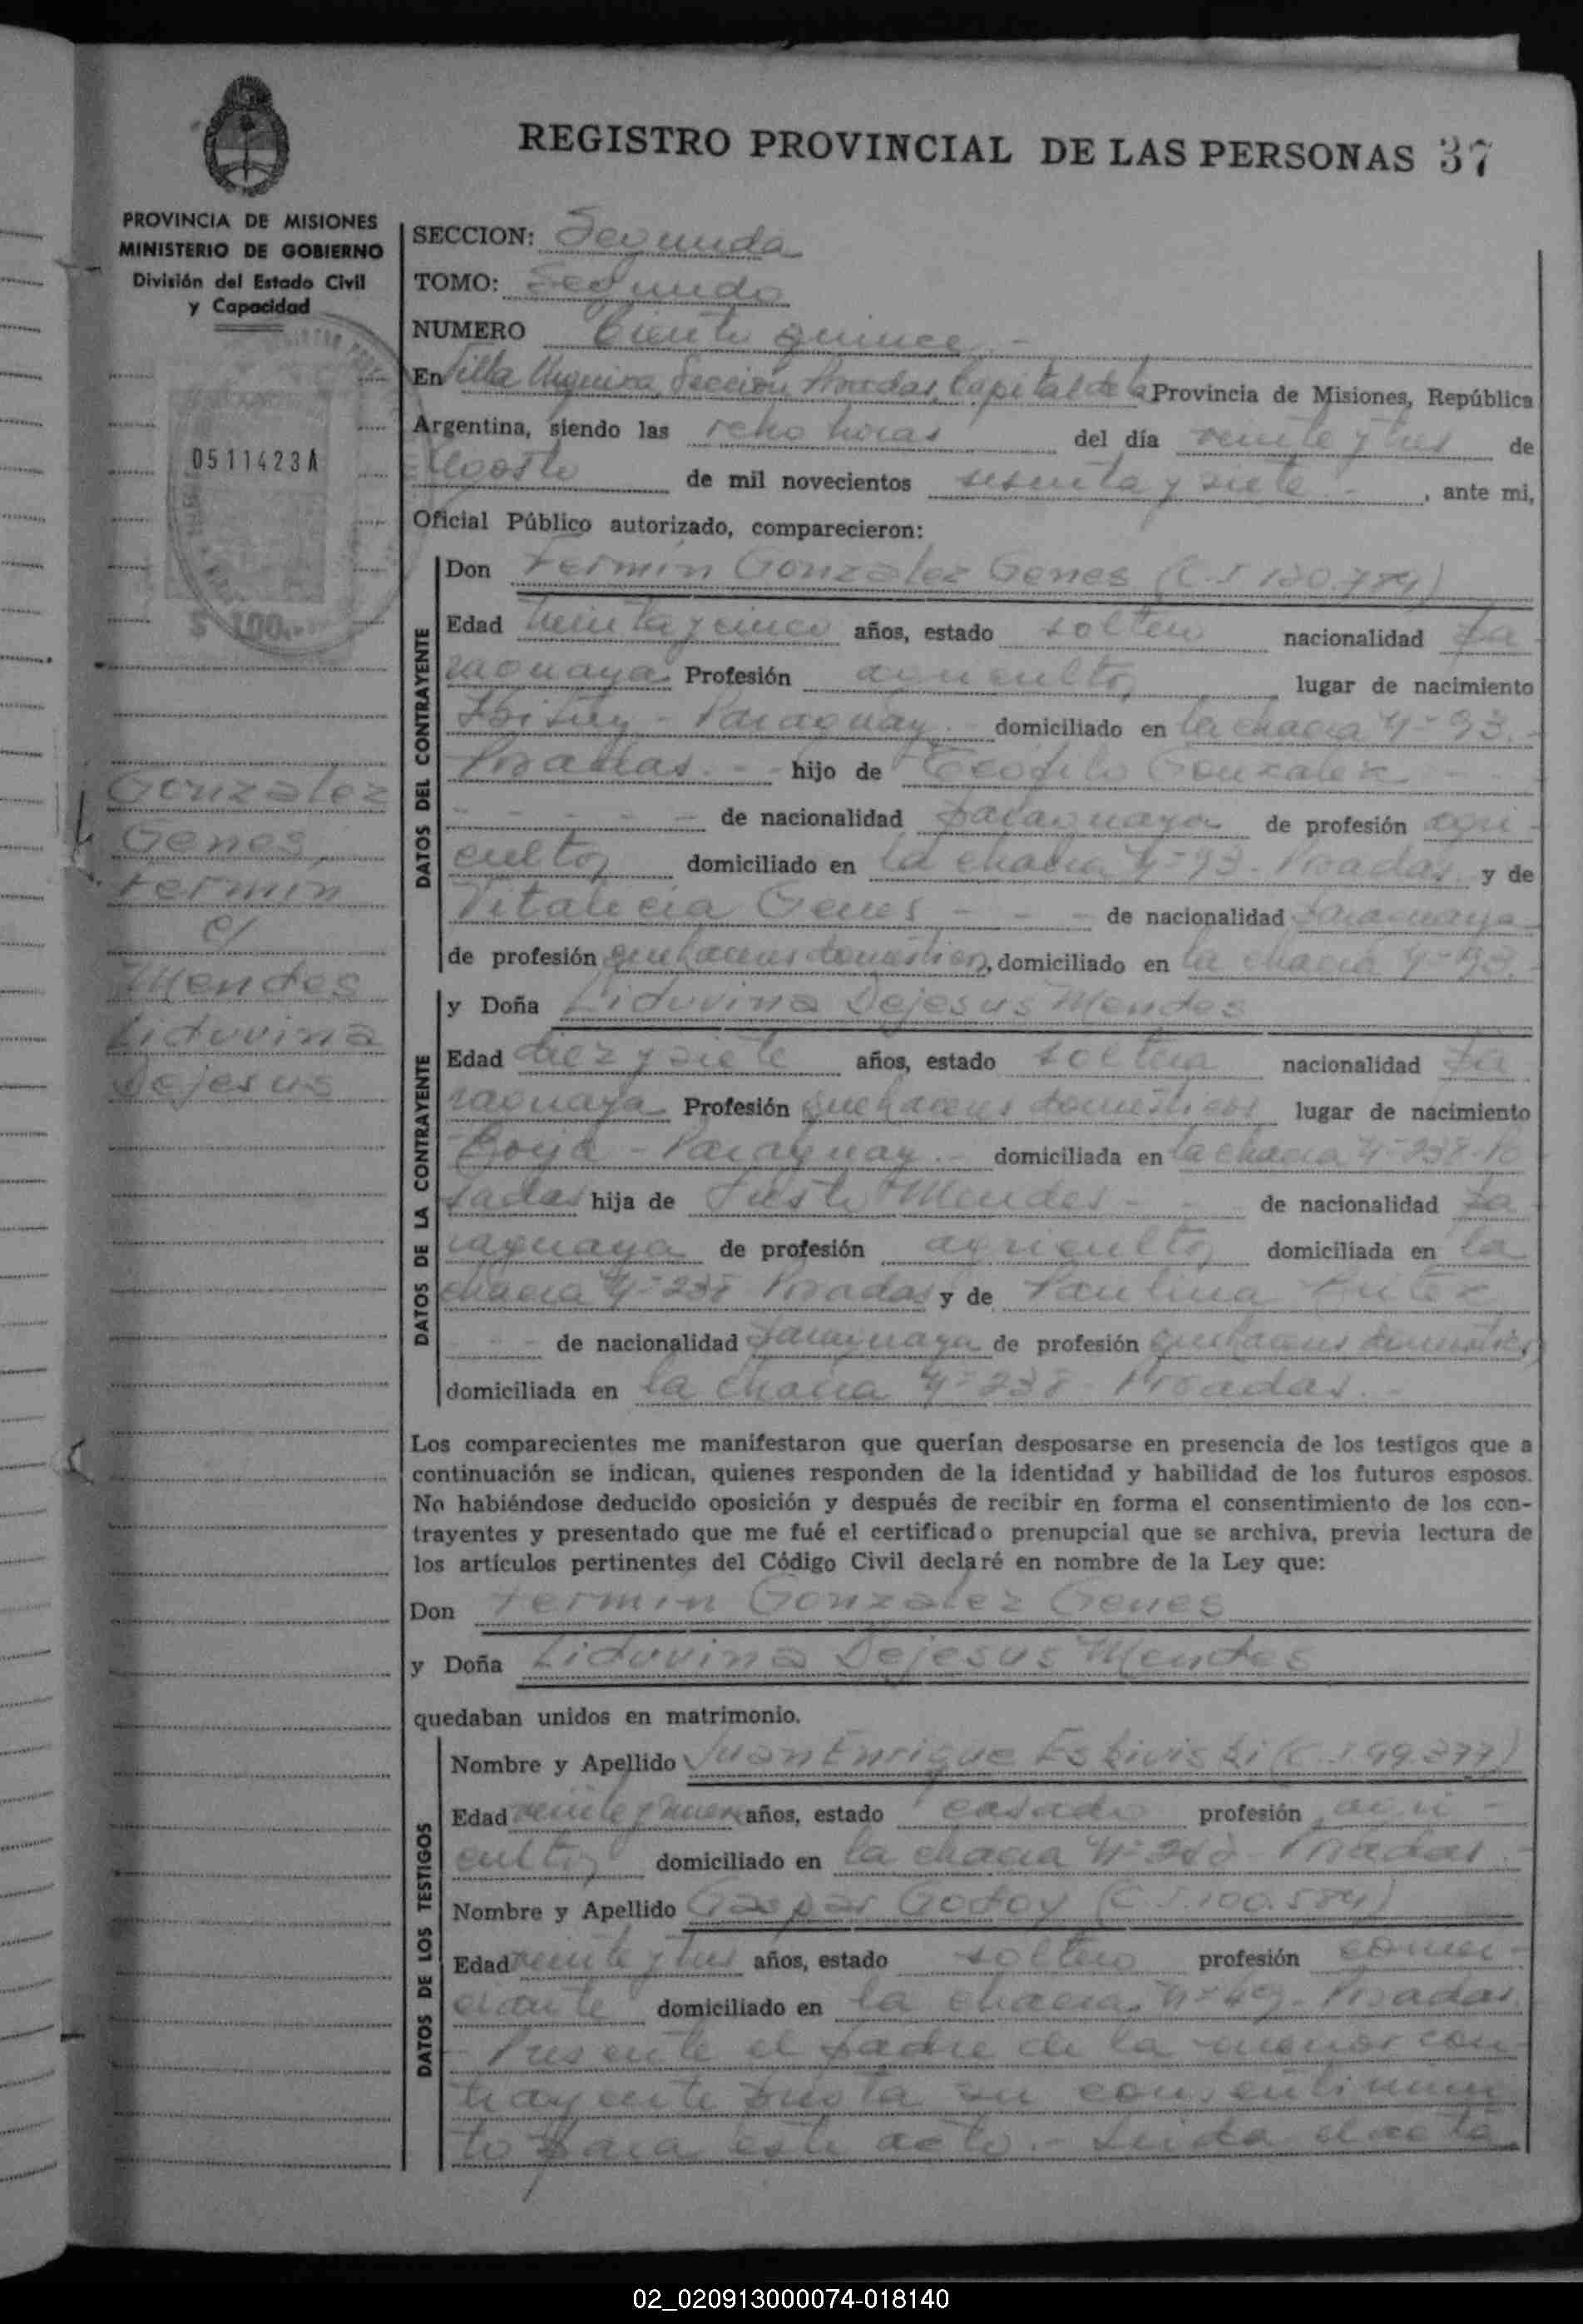 REGISTRO PROVINCIAL DE LAS PERSONAS 37
PROVINCIA DE MISIONES
MINISTERIO DE GOBIERNO
División del Estado Civil
y Capacidad
0511423A
$ 100.-
Gonzalez
Genes,
Fermin
c/
Mendes
Liduvina
Dejesus
SECCION: Segunda
TOMO: Segundo
NUMERO Ciento quince.-
En Villa Urquiza, Sección Posadas, Capital de la Provincia de Misiones, República
Argentina, siendo las ocho horas del día veinte y tres de
Agosto de mil novecientos sesenta y siete.-, ante mi,
Oficial Público autorizado, comparecieron:
DATOS DEL CONTRAYENTE
Don Fermin Gonzalez Genes (C.I 120.784)
Edad treinta y cinco años, estado soltero nacionalidad pa-
raguaya Profesión agricultor lugar de nacimiento
Ibituy - Paraguay.- domiciliado en la chacra Nº 93.-
Posadas.-- hijo de Teofilo Gonzalez - - -
- - - - - de nacionalidad paraguaya de profesión agri-
cultor domiciliado en la chacra Nº 93 - Posadas y de
Vitalicia Genes - - - de nacionalidad paraguaya
de profesión quehaceres domesticos, domiciliado en la chacra Nº 93.-
DATOS DE LA CONTRAYENTE
y Doña Liduvina Dejesus Mendes
Edad diez y siete años, estado soltera nacionalidad pa-
raguaya Profesión quehaceres domesticos lugar de nacimiento
Borja - Paraguay.- domiciliada en la chacra Nº 238 - Po
sadas hija de Justo Mendes - - de nacionalidad pa
raguaya de profesión agricultor domiciliada en la
chacra Nº 238 Posadas y de Paulina Britez
- - - de nacionalidad paraguaya de profesión quehaceres domesticos
domiciliada en la chacra Nº 238 - Posadas.-
Los comparecientes me manifestaron que querían desposarse en presencia de los testigos que a
continuación se indican, quienes responden de la identidad y habilidad de los futuros esposos.
No habiéndose deducido oposición y después de recibir en forma el consentimiento de los con-
trayentes y presentado que me fué el certificado prenupcial que se archiva, previa lectura de
los artículos pertinentes del Código Civil declaré en nombre de la Ley que:
Don Fermin Gonzalez Genes
y Doña Liduvina Dejesus Mendes
quedaban unidos en matrimonio.
DATOS DE LOS TESTIGOS
Nombre y Apellido Juan Enrique Eskiviski (C.I.99.377)
Edad veinte y nueve años, estado casado profesión agri-
cultor domiciliado en la chacra Posadas.-
Nombre y Apellido Gaspar Godoy (C.I.100.584)
Edad veinte y tres años, estado soltero profesión comer-
ciante domiciliado en la chacra Nº 49 - Posadas
- Presente el padre de la menor con-
trayente presta su consentimien
to para este acto.- Leida el acta
02_020913000074-018140